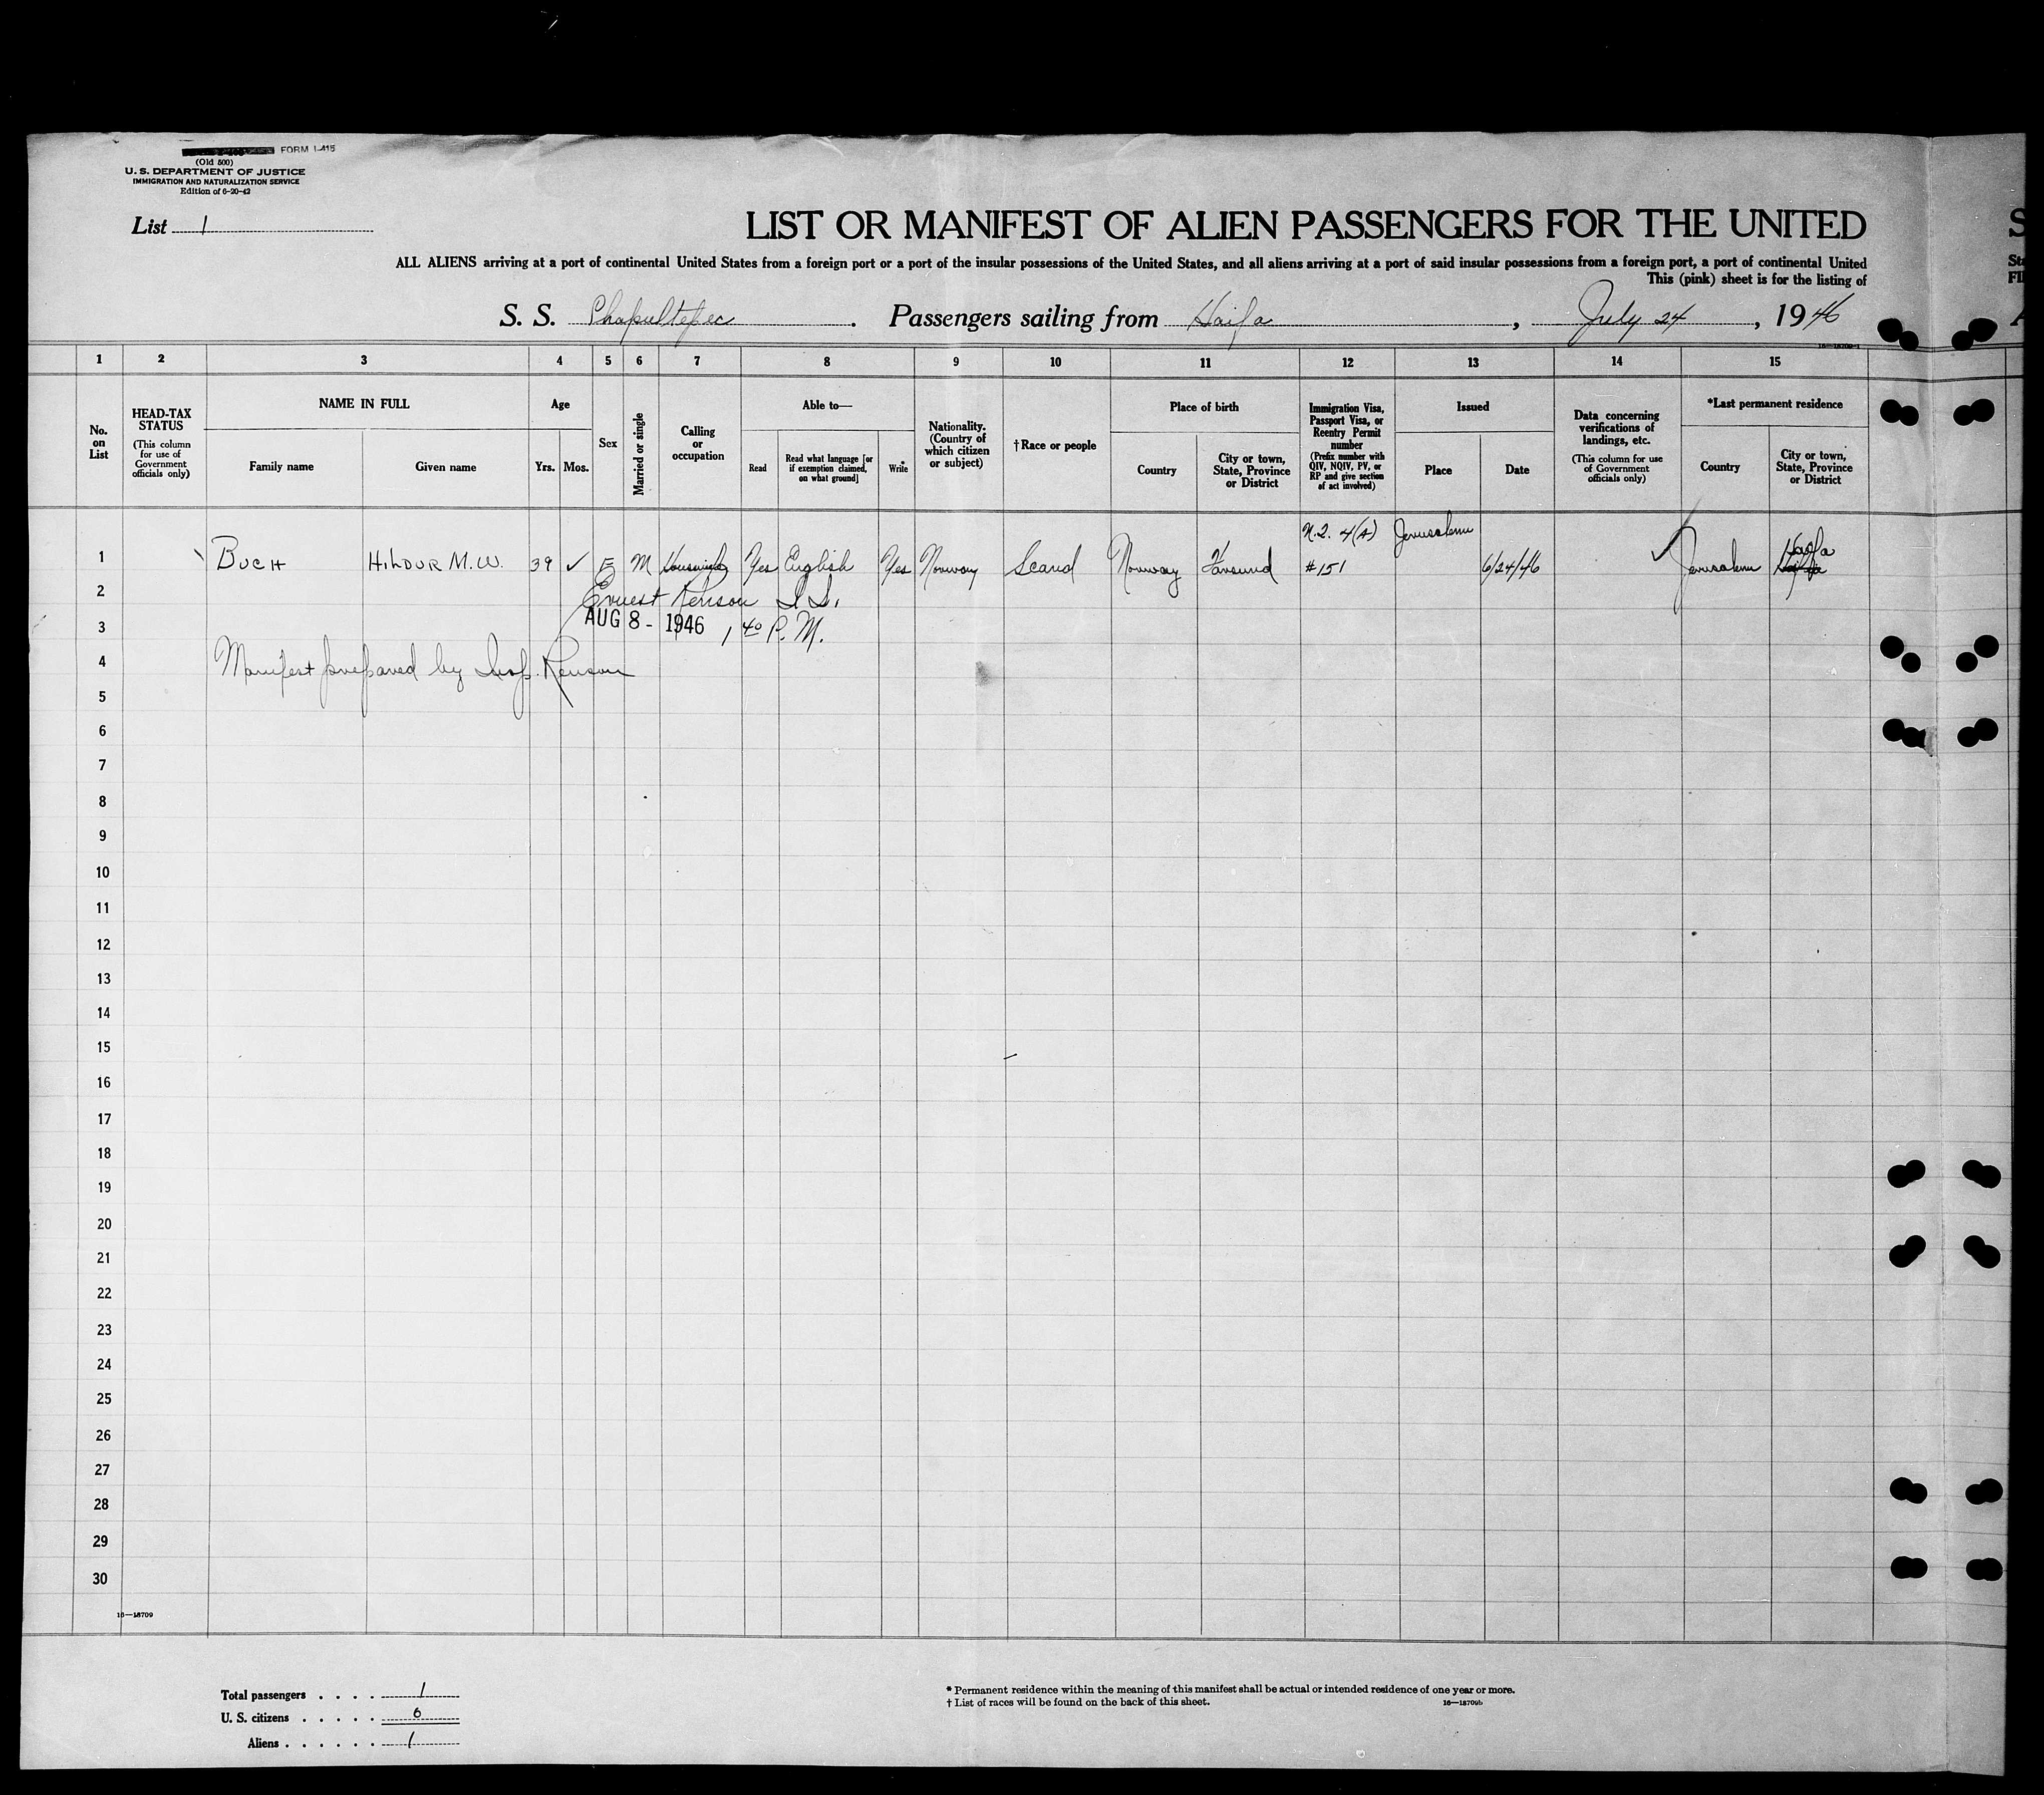 FORM I-415
(Old 500)
U. S. DEPARTMENT OF JUSTICE
IMMIGRATION AND NATURALIZATION SERVICE
Edition of 6-20-42
List 1
LIST OR MANIFEST OF ALIEN PASSENGERS FOR THE UNITED
ALL ALIENS arriving at a port of continental United States from a foreign port or a port of the insular possessions of the United States, and all aliens arriving at a port of said insular possessions from a foreign port, a port of continental United
This (pink) sheet is for the listing of
S. S. Chapultepec. Passengers sailing from Haifa, July 24, 1946
1 2 3 4 5 6 7 8 9 10 11 12 13 14 15
No. on List
HEAD-TAX STATUS
(This column for use of Government officials only)
NAME IN FULL
Family name
Given name
Age
Yrs.
Mos.
Sex
Married or single
Calling or occupation
Able to—
Read
Read what language [or if exemption claimed, on what ground]
Write*
Nationality. (Country of which citizen or subject)
† Race or people
Place of birth
Country
City or town, State, Province or District
Immigration Visa, Passport Visa, or Reentry Permit number
(Prefix number with QIV, NQIV, PV, or RP and give section of act involved)
Issued
Place
Date
Data concerning verifications of landings, etc.
(This column for use of Government officials only)
*Last permanent residence
Country
City or town, State, Province or District
4(A) Jerusalem
1 BUCH HILDUR M.W. 39 ✓ F M Housewife Yes English Yes Norway Scand Norway #151 6/24/46 Jerusalem Haifa
2 Ernest Renson
3 AUG 8 - 1946 1 40 P. M.
4 Manifest prepared by Insp. Renson
5
6
7
8
9
10
11
12
13
14
15
16
17
18
19
20
21
22
23
24
25
26
27
28
29
30
16—18709
Total passengers . . . . 1
U. S. citizens . . . . . 0
Aliens . . . . . . 1
* Permanent residence within the meaning of this manifest shall be actual or intended residence of one year or more.
† List of races will be found on the back of this sheet.
16—18709b